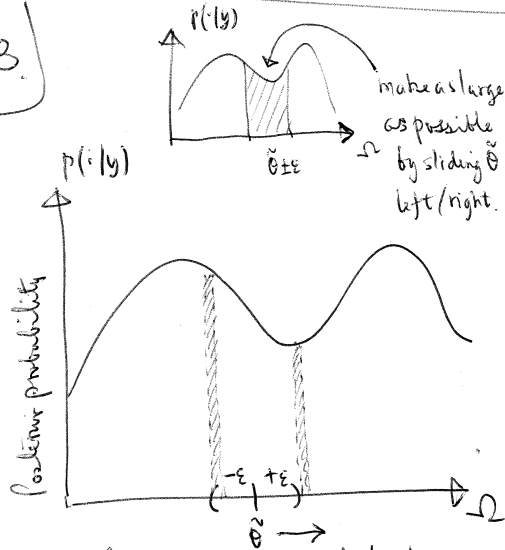 3.
p(·|y)
make as large
as possible
by sliding θ̃
left/right.
Ω
θ̃±ε
p(·|y)
Posterior probability
( -ε | +ε )
Ω
θ̃ →